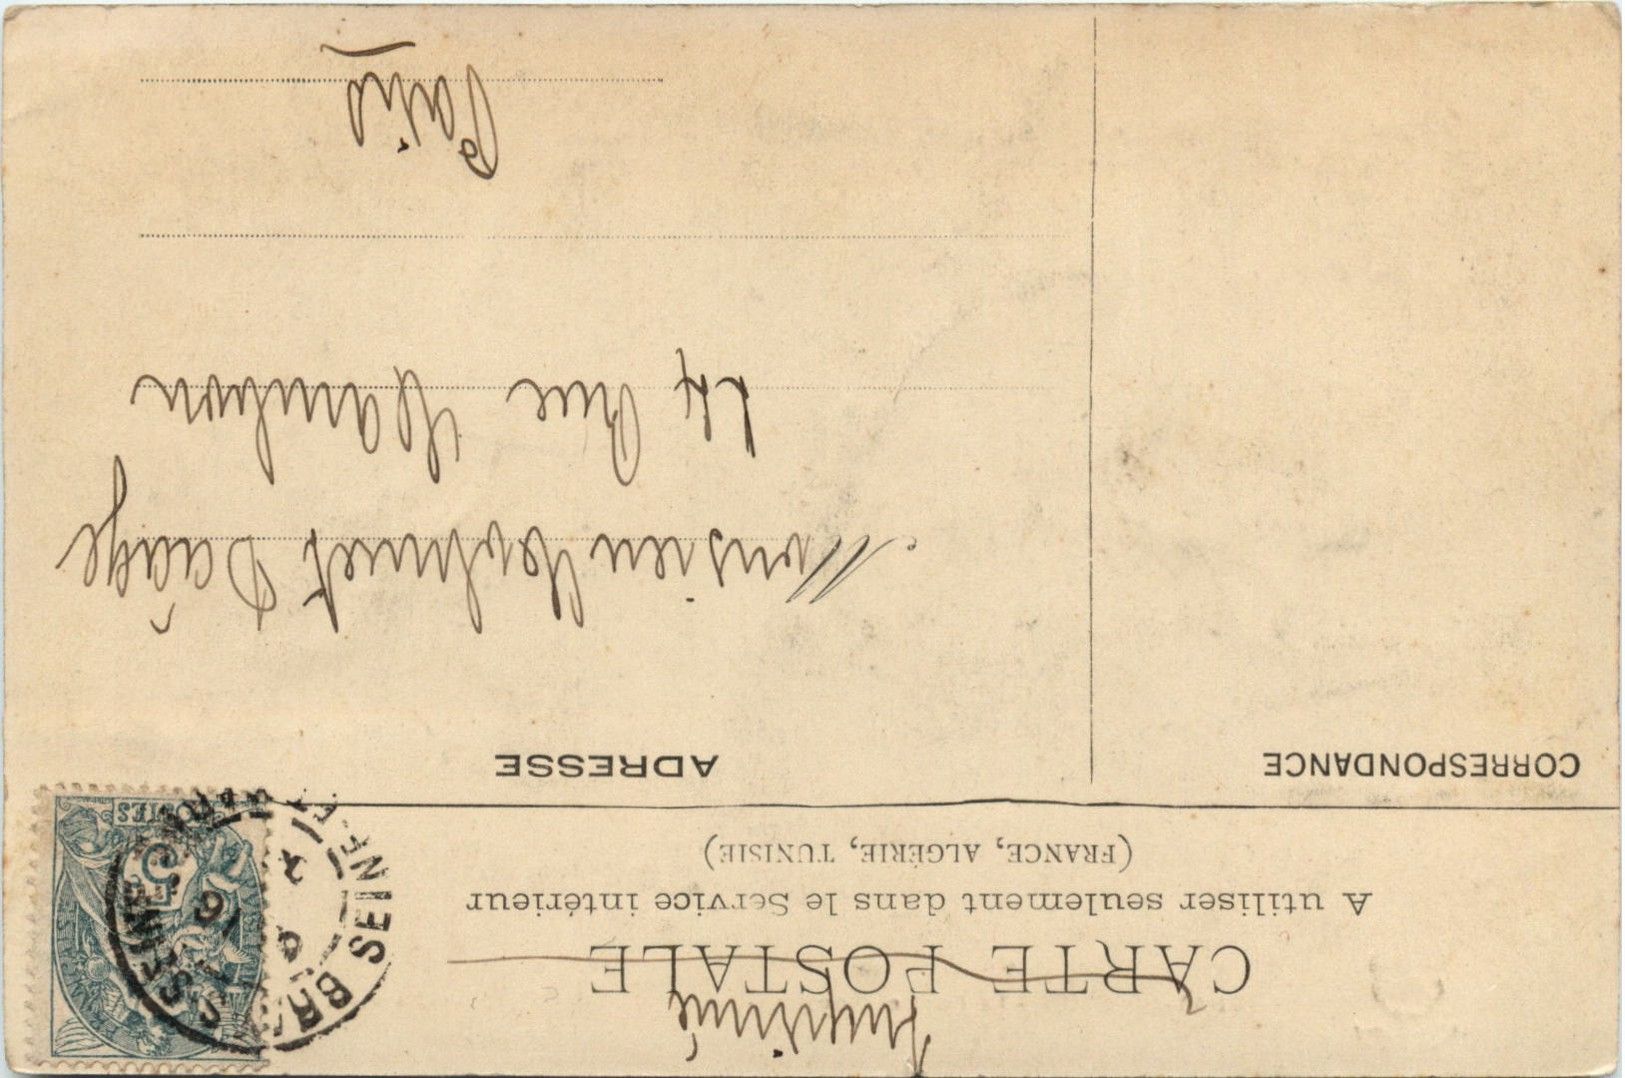 Imprimé
CARTE POSTALE
A utiliser seulement dans le Service intérieur
(FRANCE, ALGÉRIE, TUNISIE)
CORRESPONDANCE
ADRESSE
Monsieur
24 Rue Cambon
Paris
5
POSTES
SEINE